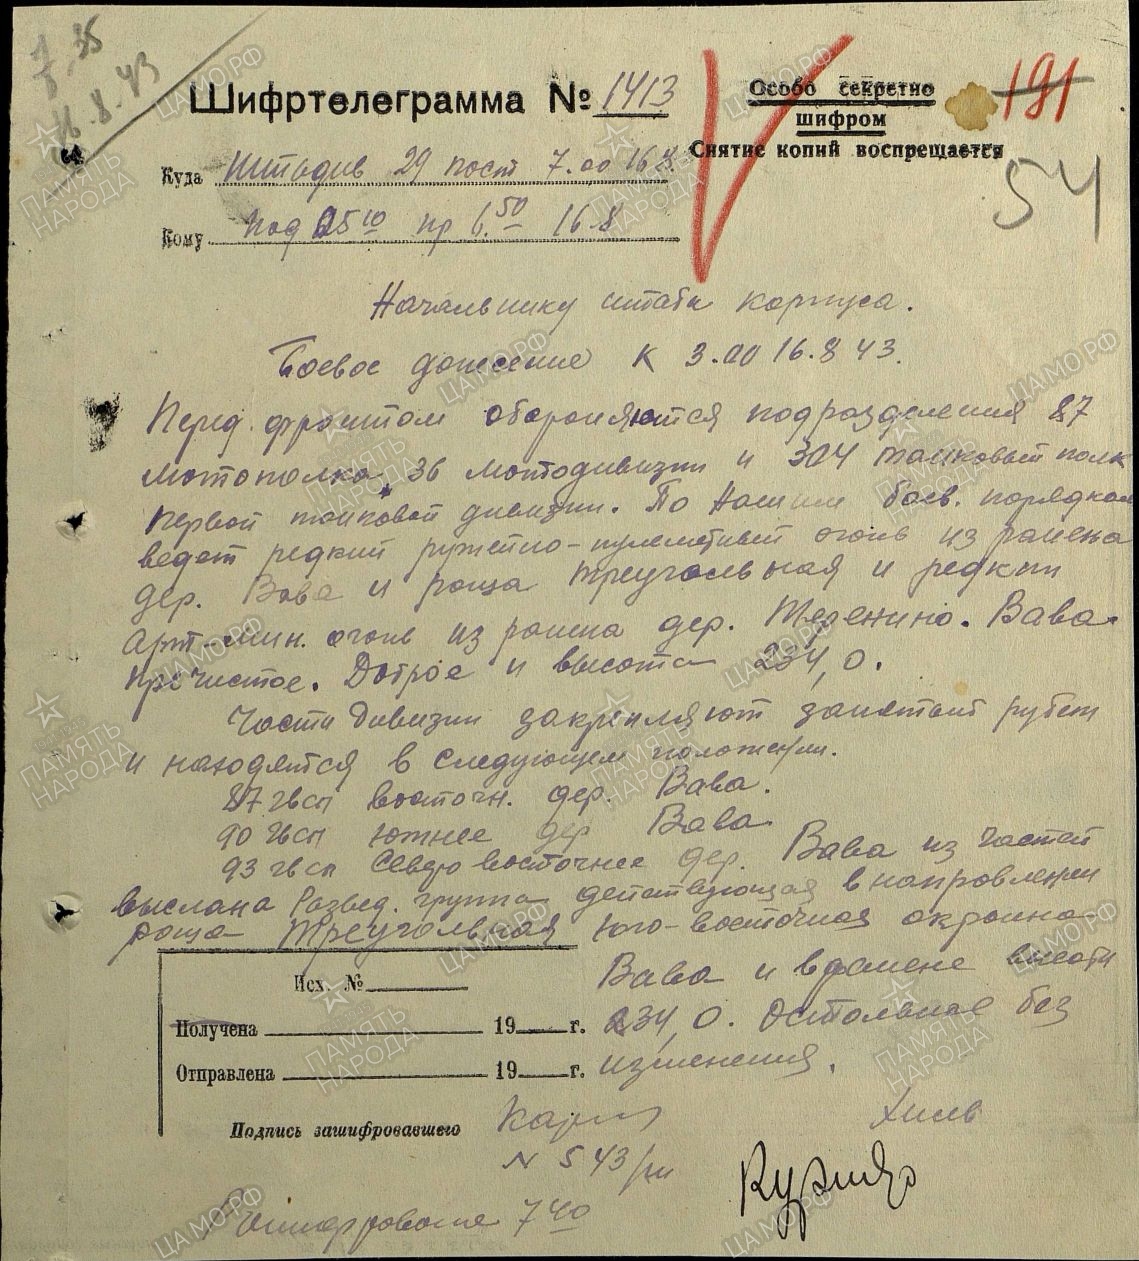 35
16.8.43
Шифртелеграмма № 1413
Особо секретно
шифром
Снятие копий воспрещается
191
54
Куда Штадив 29 пост 7.00 16.8.
Кому под 05 10 пр 6.50 16.8
Начальнику штаба корпуса.
Боевое донесение К 3.00 16.8 43.
Перед фронтом обороняются подразделения 87
мотополка, 36 мотодивизии и 304 танковый полк
первой танковой дивизии. По нашим боев. порядкам
ведет редкий ружейно-пулеметный огонь из района
дер. Вава и роща Треугольная и редкий
Арт-мин. огонь из района дер. Теренино. Вава.
Пречистое. Доброе и высота 234,0.
Части Дивизии закрепляют занятый рубеж
и находятся в следующем положении.
87 гвсп восточн. дер. Вава.
90 гвсп южнее дер Вава
93 гвсп Северо восточнее дер. Вава из частей
выслана Развед. группа действующая в направлении
роща Треугольная юго-восточная окраина
Вава и в районе высоты
234,0. Остальное без
изменения.
Исх. №
Получена 19 г.
Отправлена 19 г.
Подпись зашифровавшего
N 543/ш
7 40
ПАМЯТЬ НАРОДА
ЦАМО.РФ